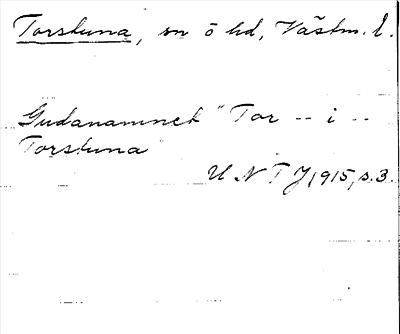 Torstuna, sn ö hd, Västm. l.
Gudanamnet "Tor -- i --
Torstuna"
U N T J 1915, s. 3.